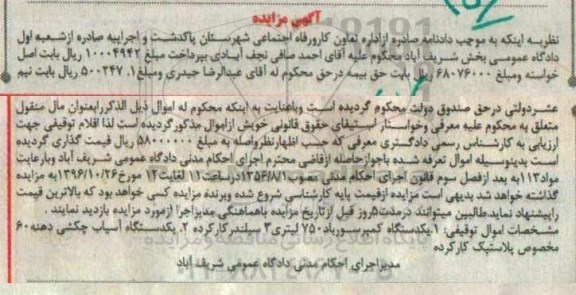 آگهی مزایده
نظربه اینکه به موجب دادنامه صادره ازاداره تعاون کارورفاه اجتماعی شهرستان پاکدشت و اجراییه صادره ازشعبه اول
دادگاه عمومی بخش شریف آباد محکوم علیه آقای احمد صافی نجف آبادی بپرداخت مبلغ ۱۰۰۰۴۹۴۲ ریال بابت اصل
خواسته ومبلغ ۶۸۰۷۶۰۰۰ ریال بابت حق بیمه درحق محکوم له آقای عبدالرضا حیدری ومبلغ ۵۰۰۲۴۷.۱ ریال بابت نیم
عشردولتی درحق صندوق دولت محکوم گردیده است وباعنایت به اینکه محکوم له اموال ذیل الذکررابعنوان مال منقول
متعلق به محکوم علیه معرفی وخواستار استیفای حقوق قانونی خویش ازاموال مذکورگردیده است لذا اقلام توقیفی جهت
ارزیابی به کارشناس رسمی دادگستری معرفی که حسب اظهارنظرواصله به مبلغ ۵۸۰۰۰۰۰۰ ریال قیمت گذاری گردیده
است بدینوسیله اموال تعرفه شده باجوازحاصله ازقاضی محترم اجرای احکام مدنی دادگاه عمومی شریف آباد وبارعایت
مواد۱۱۳به بعد ازفصل سوم قانون اجرای احکام مدنی مصوب ۱۳۵۶/۸/۱درساعت۱۱ لغایت۱۲ مورخ۱۳۹۶/۱۰/۲۶به مزایده
گذاشته خواهد شد بدیهی است مزایده ازقیمت پایه کارشناسی شروع شده وبرنده مزایده کسی خواهد بود که بالاترین قیمت
راپیشنهاد نماید.طالبین میتوانند درمدت۵روز قبل ازتاریخ مزایده باهماهنگی مدیراجرا ازمورد مزایده بازدید نمایند .
مشخصات اموال توقیفی: ۱.یکدستگاه کمپرسورباد۷۵۰ لیتری۲ سیلندرکارکرده ۲. یکدستگاه آسیاب چکشی دهنه۶۰
مخصوص پلاستیک کارکرده
مدیراجرای احکام مدنی دادگاه عمومی شریف آباد